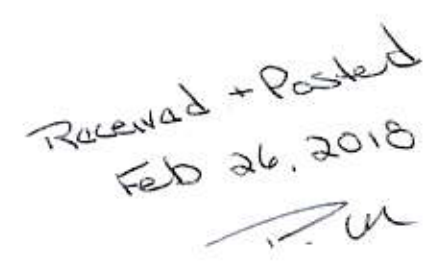 Received + Posted
Feb 26, 2018